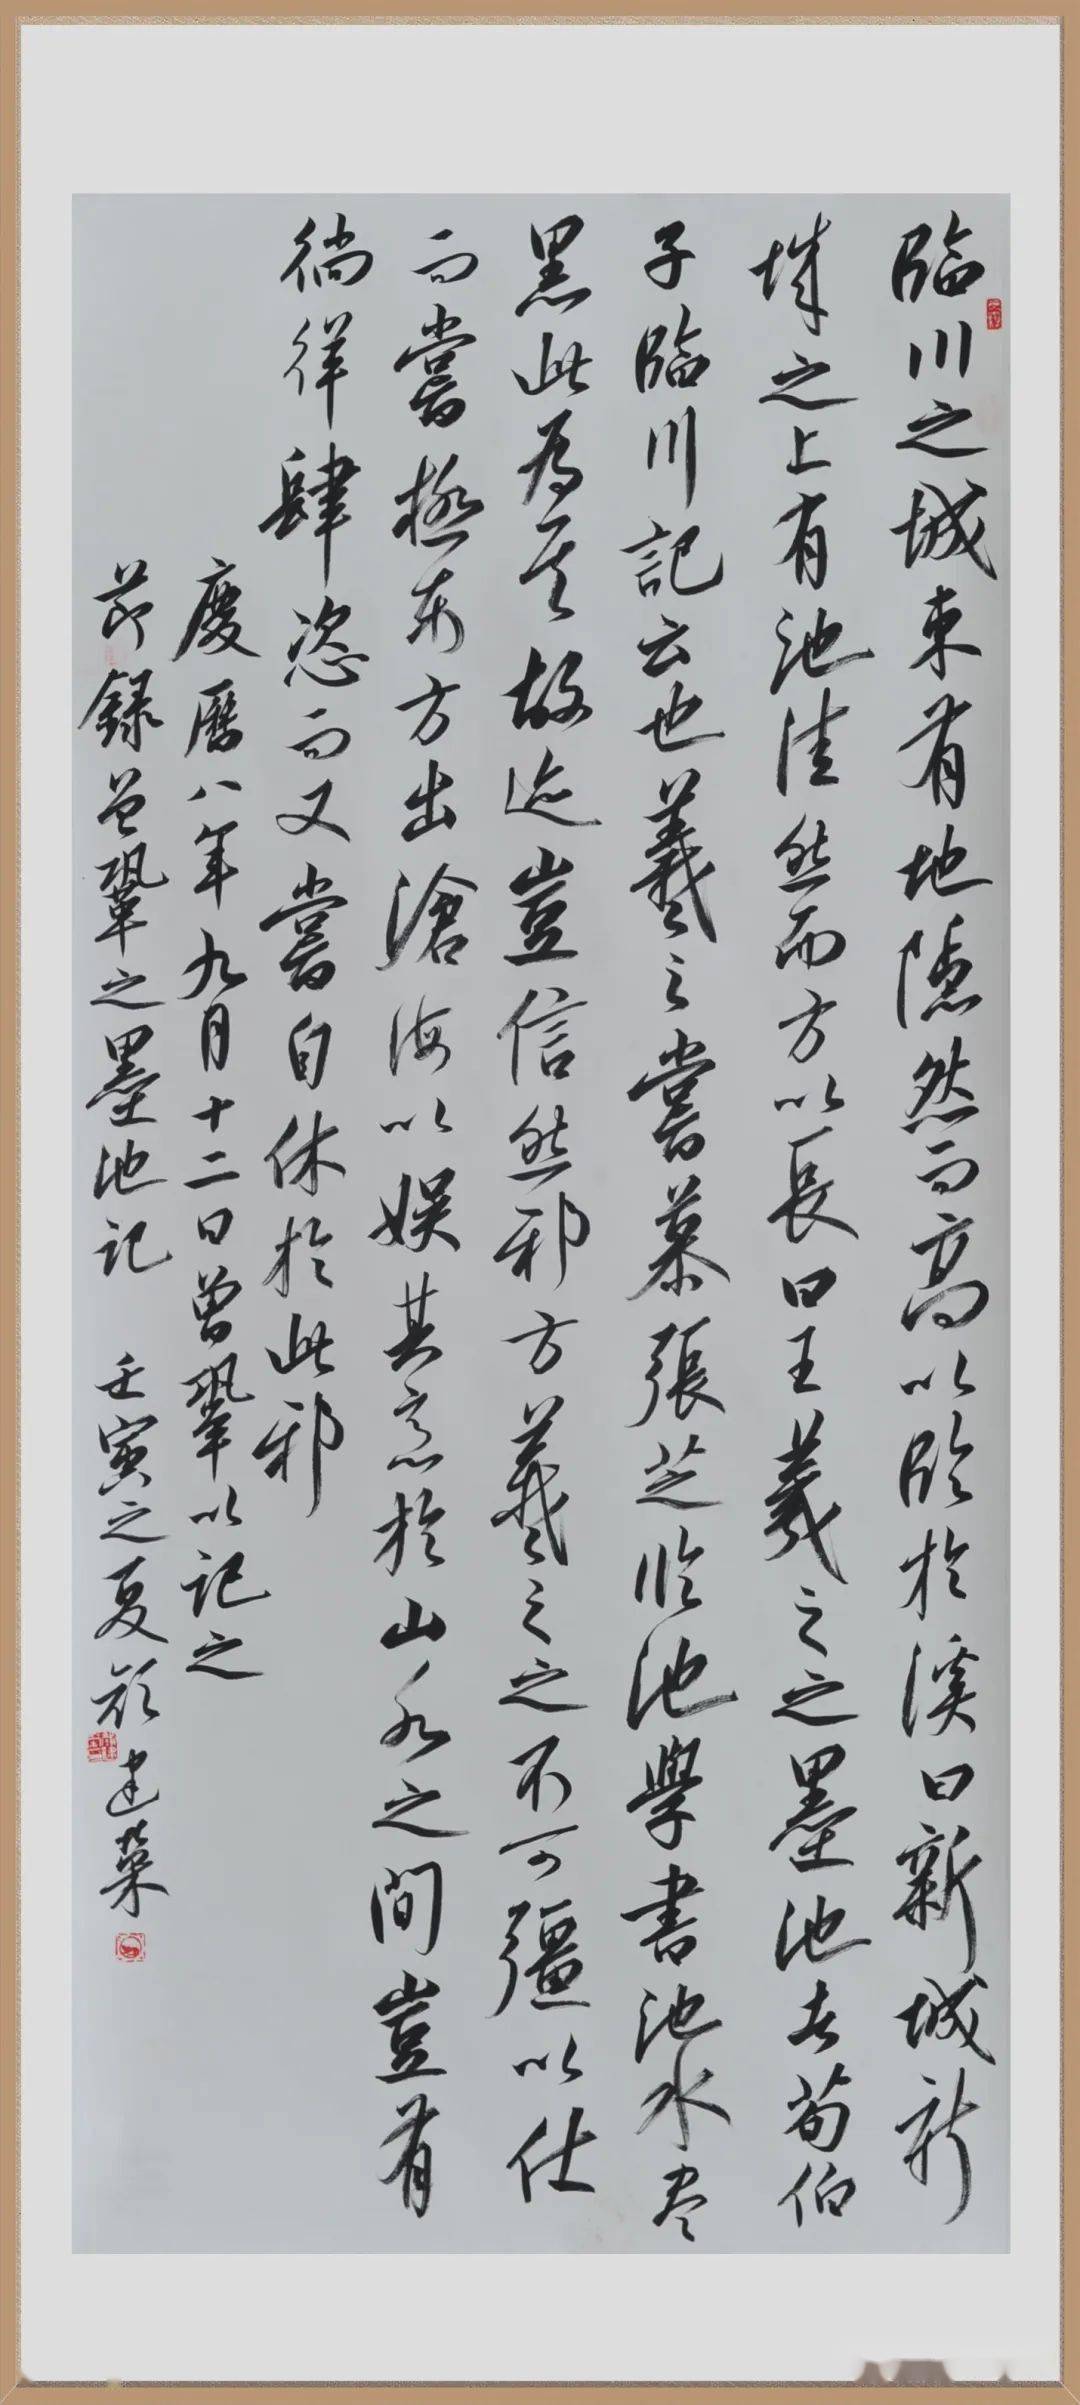 臨川之城東有地隱然而高以臨於溪曰新城新
城之上有池洼然而方以長曰王羲之之墨池者荀伯
子臨川記云也羲之嘗慕張芝臨池學書池水尽
黑此為其故迹豈信然邪方羲之之不可彊以仕
而嘗極東方出滄海以娛其意於山水之間豈有
徜徉肆恣而又嘗自休於此邪
慶曆八年九月十二日曾鞏以記之
節録曾鞏之墨池記 壬寅之夏 顏建榮